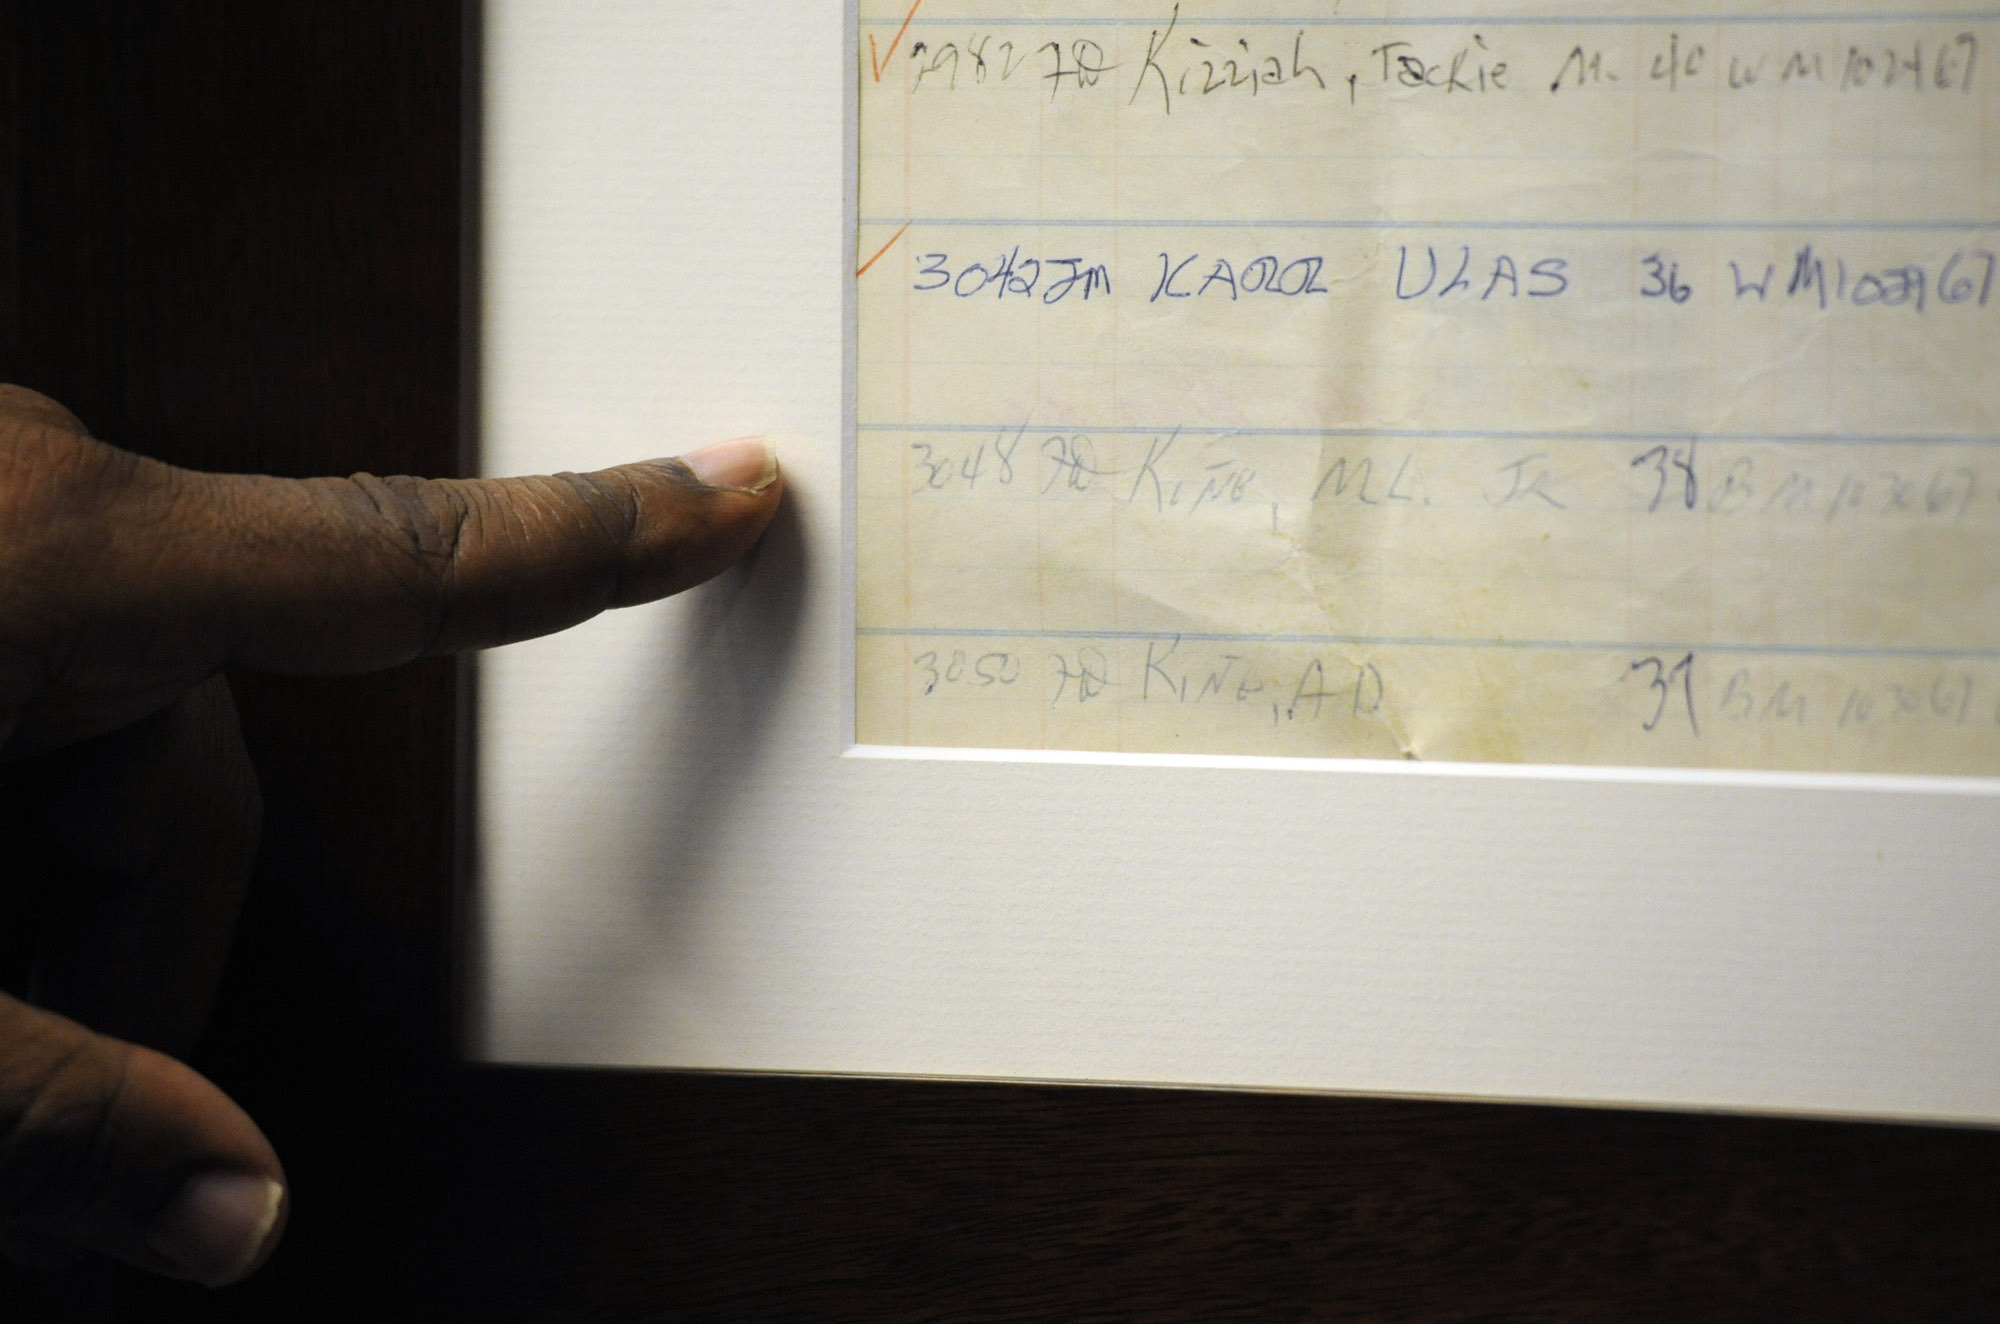 2982 7D Kizziah, Jackie M. 40 W M 102467
3042 JM KAROL ULAS 36 W M 102967
3048 7D King, M L. Jr 38 B M 103067
3050 7D King, A D 37 B M 103067